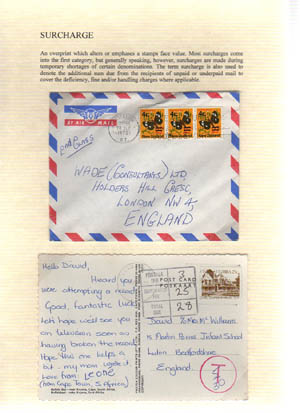 SURCHARGE
An overprint which alters or emphases a stamps face value. Most surcharges come
into the first category, but generally speaking, however, surcharges are made during
temporary shortages of certain denominations. The term surcharge is also used to
denote the additional sum due from the recipients of unpaid or underpaid mail to
cover the deficiency, fine and/or handling charges where applicable.
BY AIR MAIL
2nd Class
WADE (CONSULTANTS) LTD,
HOLDERS HILL CRESC,
LONDON NW4,
ENGLAND
Hello David,
Heard you
were attempting a record
Good, fantastic luck
Let's hope we'll see you
on television soon as
having broken the record
Hope this one helps a
bit - my mom wrote it
Love from: Leonie
(from Cape Town, S. Africa)
POST CARD
3
25
28
David
Mc Williams
Infant School
Luton Bedfordshire
England.
T